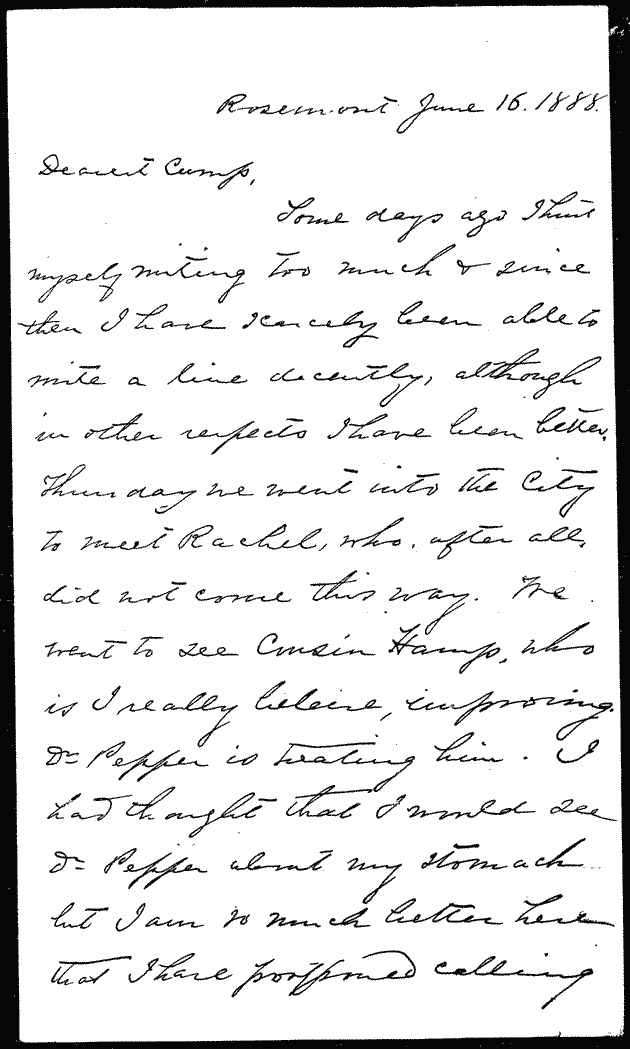 Rosemont June 16. 1888.
Dearest Cump,
Some days ago I hurt
myself writing too much & since
then I have scarcely been able to
write a line decently, although
in other respects I have been better.
Thursday we went into the City
to meet Rachel, who, after all,
did not come this way. We
went to see Cousin Hamp, who
is I really believe, improving.
Dr Pepper is treating him. I
had thought that I would see
Dr Pepper about my stomach
but I am so much better here
that I have postponed calling